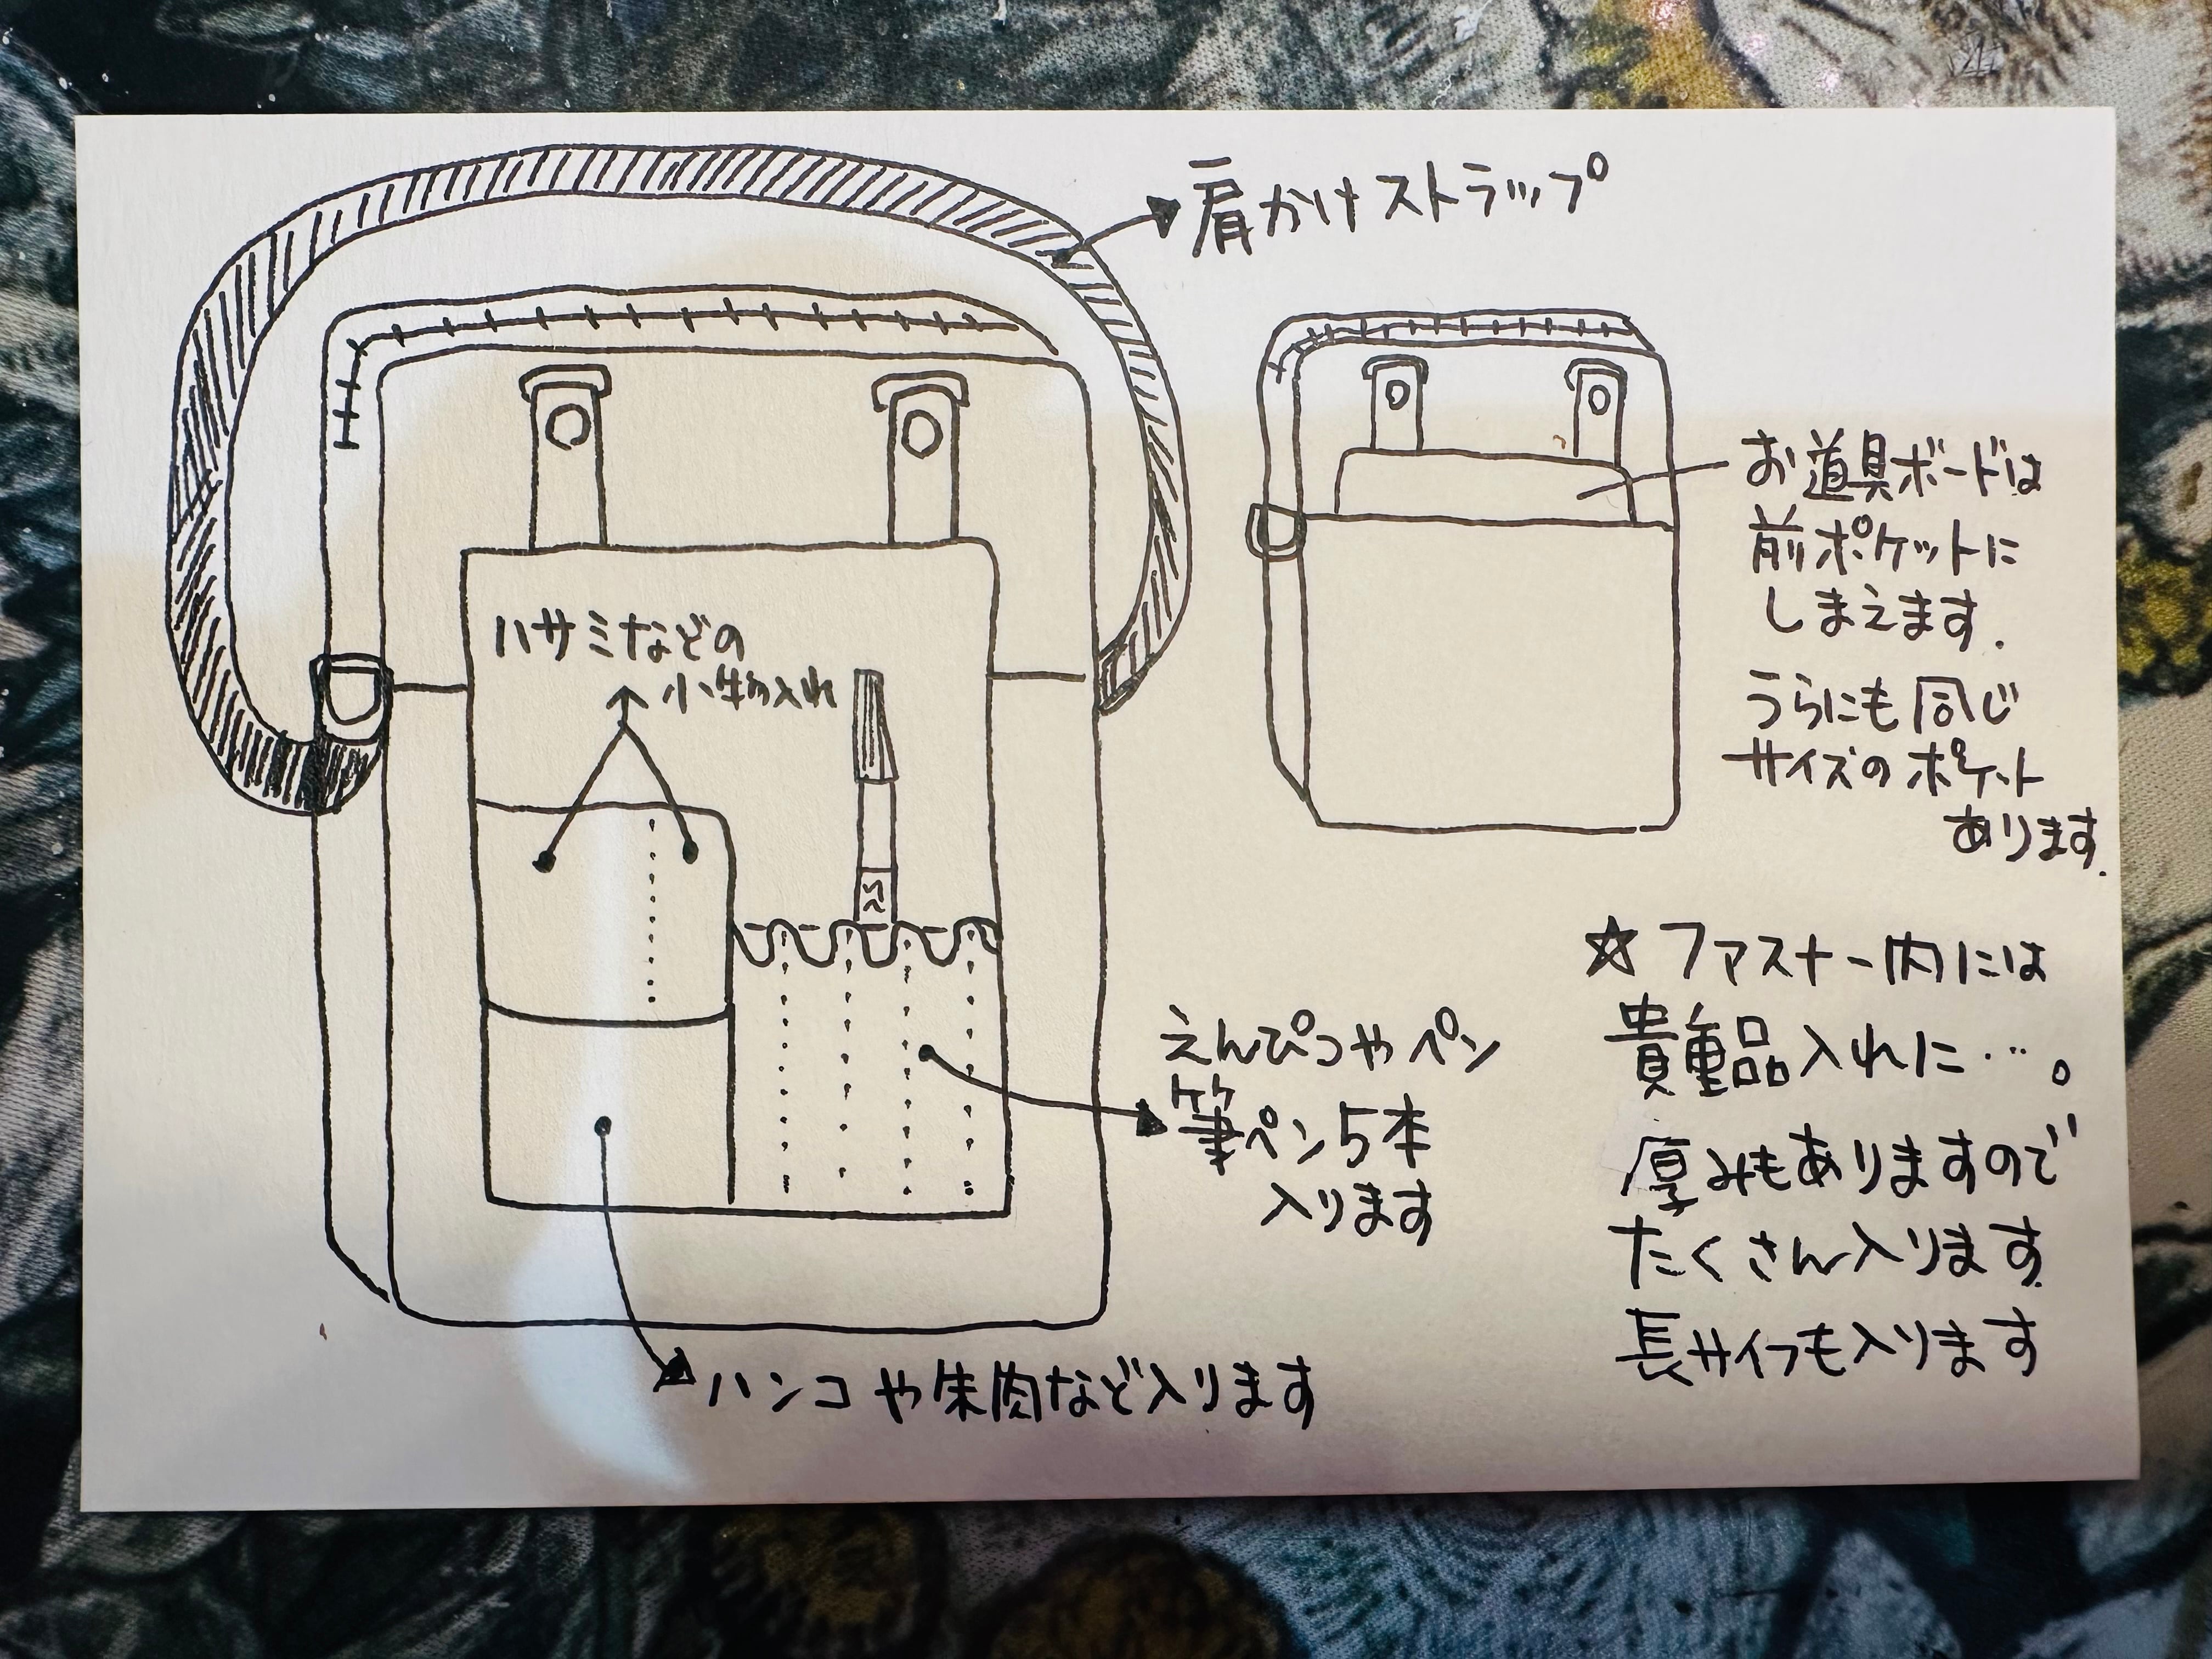 肩かけストラップ
ハサミなどの
小物入れ
お道具ボードは
前ポケットに
しまえます.
うらにも同じ
サイズのポケット
あります.
☆ファスナー内には
貴重品入れに…。
厚みもありますので
たくさん入ります.
長サイフも入ります
えんぴつやペン
筆ペン5本
入ります
ハンコや朱肉など入ります